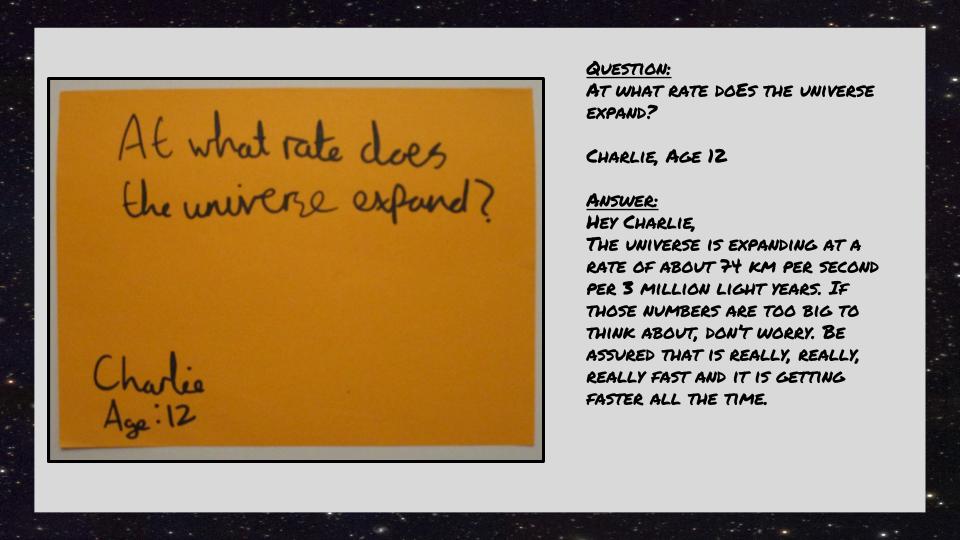 At what rate does
the universe expand?
Charlie
Age:12
QUESTION:
AT WHAT RATE DOES THE UNIVERSE
EXPAND?
CHARLIE, AGE 12
ANSWER:
HEY CHARLIE,
THE UNIVERSE IS EXPANDING AT A
RATE OF ABOUT 74 KM PER SECOND
PER 3 MILLION LIGHT YEARS. IF
THOSE NUMBERS ARE TOO BIG TO
THINK ABOUT, DON'T WORRY. BE
ASSURED THAT IS REALLY, REALLY,
REALLY FAST AND IT IS GETTING
FASTER ALL THE TIME.